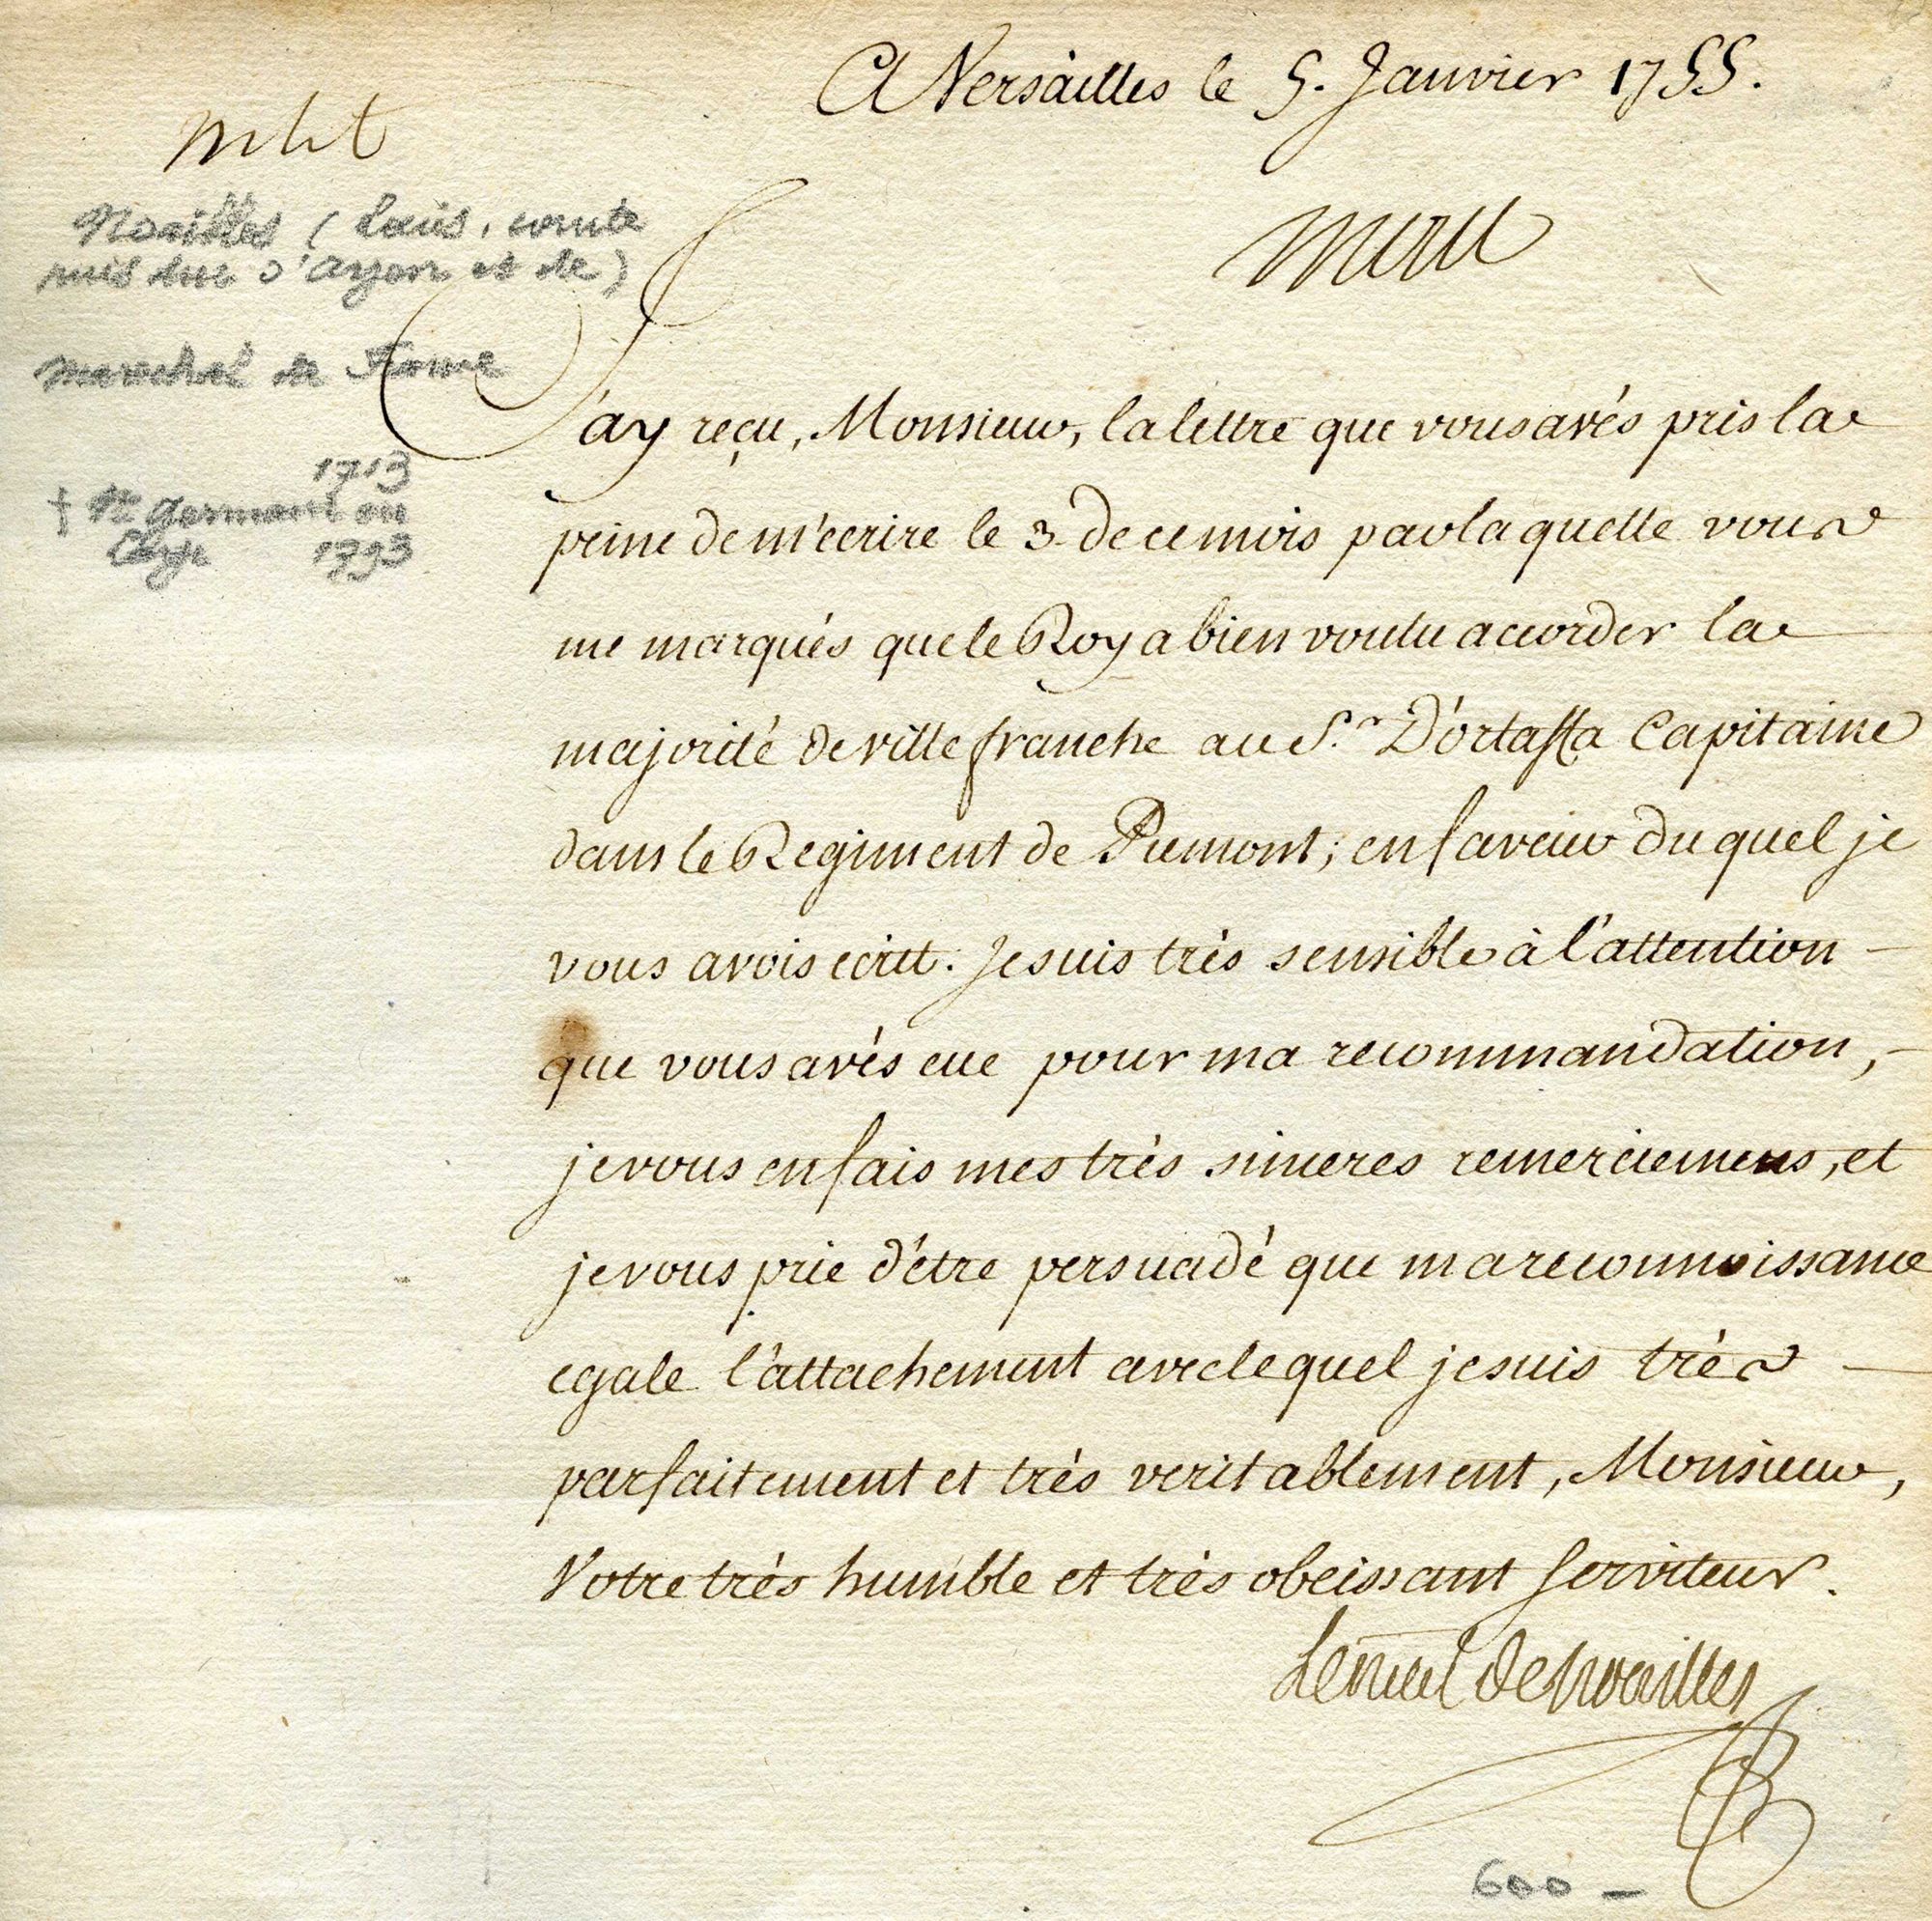 A Versailles le 5. Janvier 1755.
Noailles (Louis, comte
puis duc d'Ayen et de)
Marechal de France
1713
† St Germain en
Laye 1793
J'ay reçu, Monsieur, la lettre que vous avés pris la
peine de m'ecrire le 3 de ce mois par laquelle vous
me marqués que le Roy a bien voulu accorder la
majorité de ville franche au S.r D'ortaffa Capitaine
dans le Regiment de Piemont; en faveur du quel je
vous avois ecrit. Je suis très sensible à l'attention
que vous avés eue pour ma recommandation,
je vous en fais mes très sinceres remerciemens, et
je vous prie d'être persuadé que ma reconnoissance
egale l'attachement avec lequel je suis très
parfaitement et très veritablement, Monsieur,
Votre très humble et très obeissant serviteur.
Le mal de Noailles
600 -